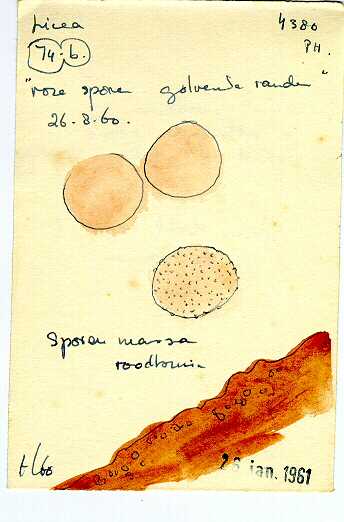 Licea
4380
PH.
74-b.
"roze sporen golvende randen"
26-8-60.
Sporen massa
roodbruin
26 jan. 1961